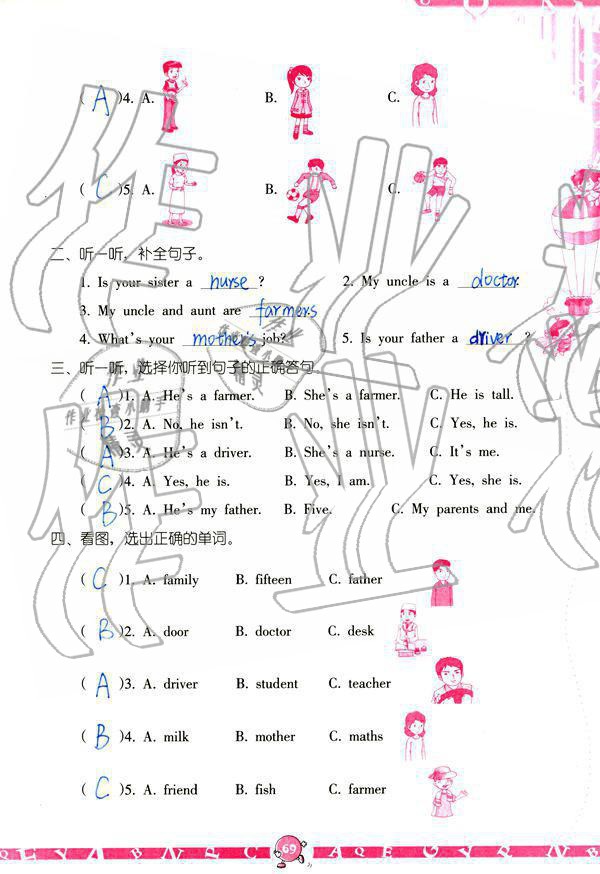 ( A )4. A. B. C.
( C )5. A. B. C.
二、听一听，补全句子。
1. Is your sister a nurse ? 2. My uncle is a doctor.
3. My uncle and aunt are farmers
4. What's your mother's job? 5. Is your father a driver ?
三、听一听，选择你听到句子的正确答句。
( A )1. A. He's a farmer. B. She's a farmer. C. He is tall.
( B )2. A. No, he isn't. B. No, she isn't. C. Yes, he is.
( A )3. A. He's a driver. B. She's a nurse. C. It's me.
( C )4. A. Yes, he is. B. Yes, I am. C. Yes, she is.
( B )5. A. He's my father. B. Five. C. My parents and me.
四、看图，选出正确的单词。
( C )1. A. family B. fifteen C. father
( B )2. A. door B. doctor C. desk
( A )3. A. driver B. student C. teacher
( B )4. A. milk B. mother C. maths
( C )5. A. friend B. fish C. farmer
69